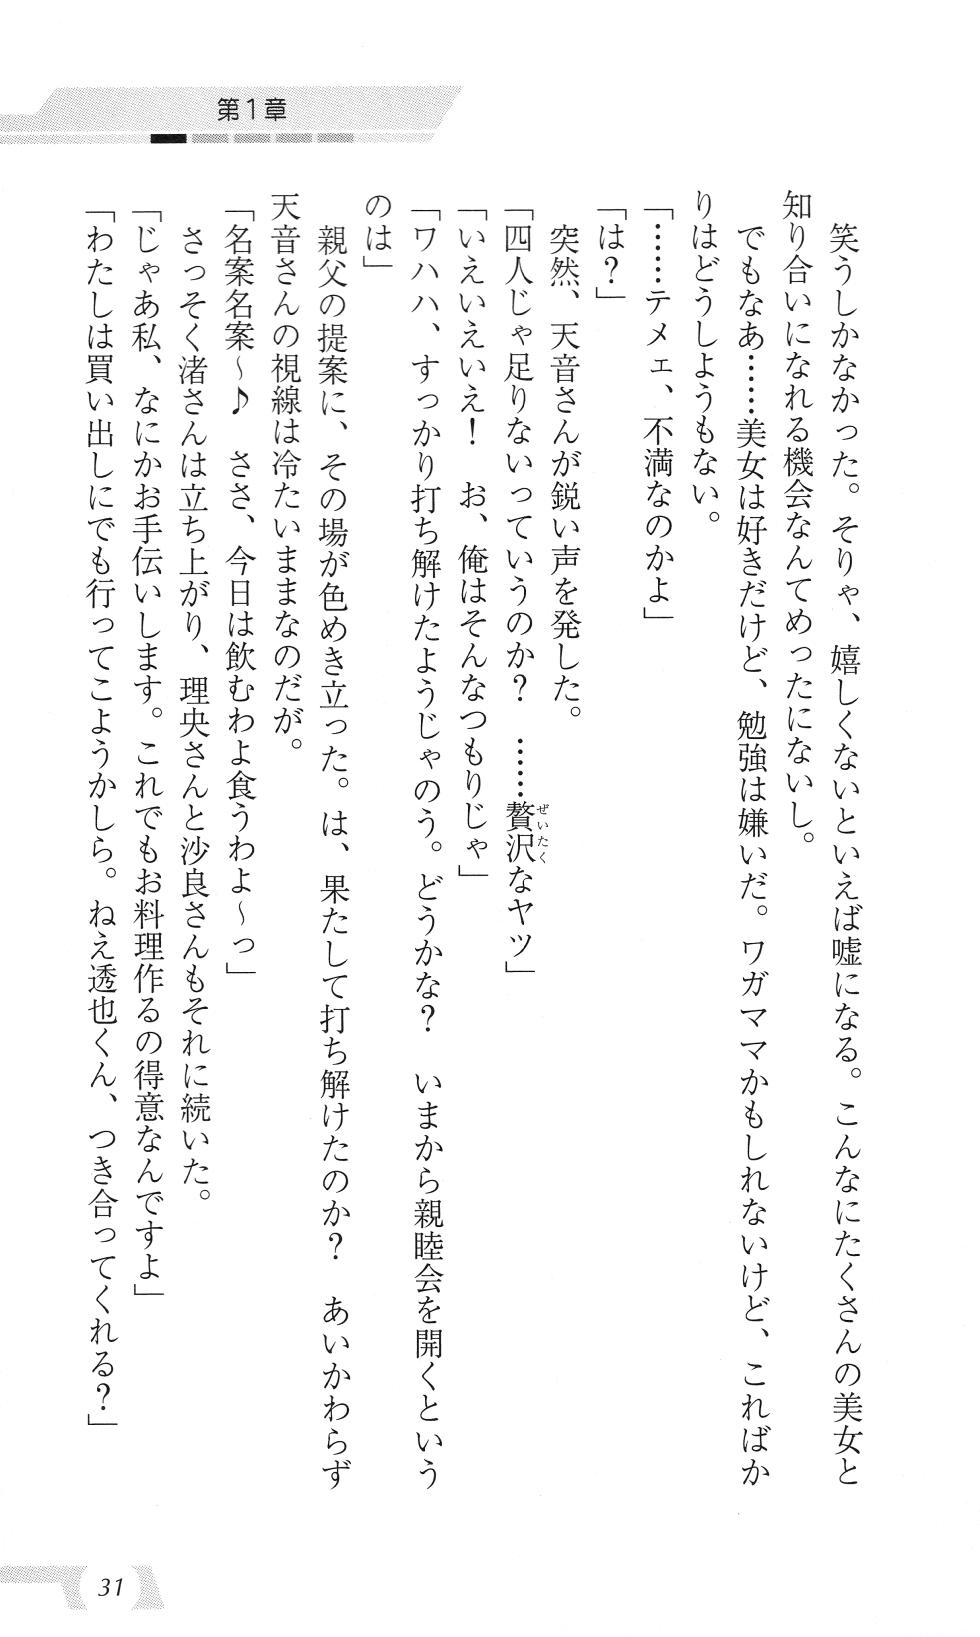 第1章
　笑うしかなかった。そりゃ、嬉しくないといえば嘘になる。こんなにたくさんの美女と
知り合いになれる機会なんてめったにないし。
　でもなあ……美女は好きだけど、勉強は嫌いだ。ワガママかもしれないけど、こればか
りはどうしようもない。
「……テメェ、不満なのかよ」
「は？」
　突然、天音さんが鋭い声を発した。
「四人じゃ足りないっていうのか？　……贅沢なヤツ」
ぜいたく
「いえいえいえ！　お、俺はそんなつもりじゃ」
「ワハハ、すっかり打ち解けたようじゃのう。どうかな？　いまから親睦会を開くという
のは」
　親父の提案に、その場が色めき立った。は、果たして打ち解けたのか？　あいかわらず
天音さんの視線は冷たいままなのだが。
「名案名案～♪　ささ、今日は飲むわよ食うわよ～っ」
　さっそく渚さんは立ち上がり、理央さんと沙良さんもそれに続いた。
「じゃあ私、なにかお手伝いします。これでもお料理作るの得意なんですよ」
「わたしは買い出しにでも行ってこようかしら。ねえ透也くん、つき合ってくれる？」
31